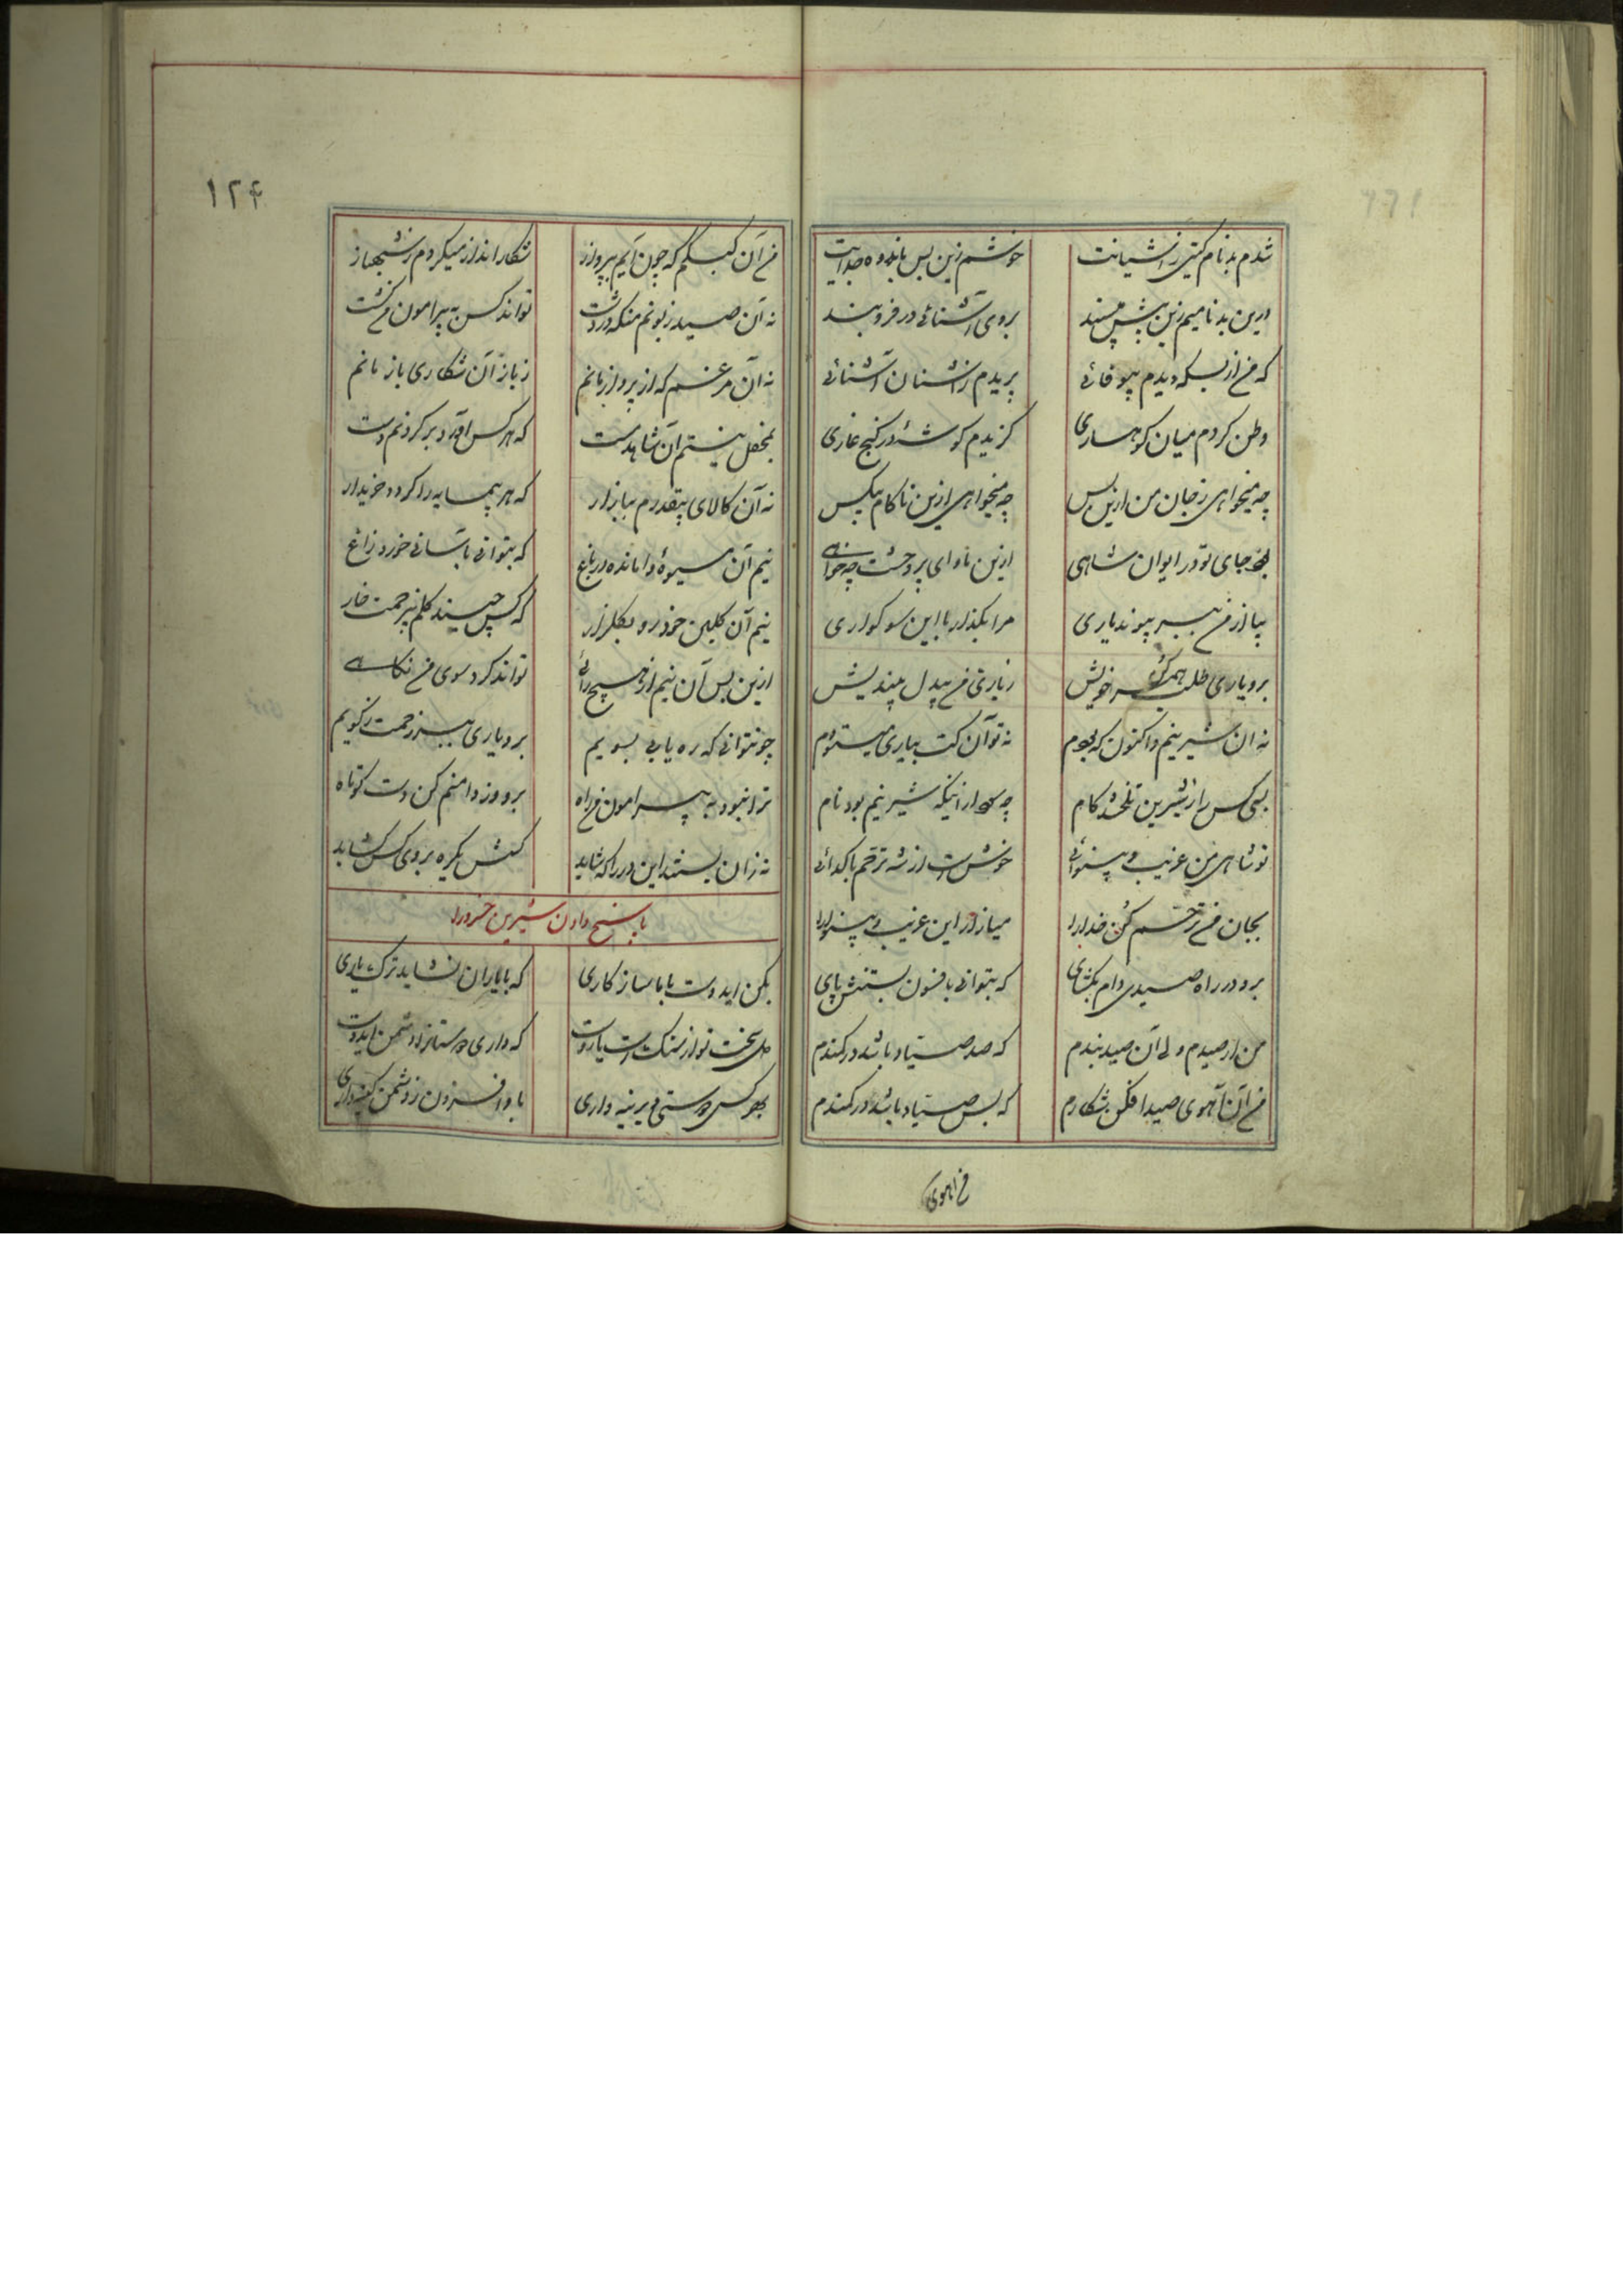 شدم بدنام گیتی ز آشیانت	خوشم زین پس باندوه جدائیت
درین بدنامیم زین بیش مپسند	بروی آشنائی در فروبند
که من از بسکه دیدم بیوفائی	بریدم ز آشنایان آشنائی
وطن کردم میان کوهساری	گزیدم گوشهٔ در کنج غاری
چه میخواهی ز جان من ازین پس	چه میخواهی ازین ناکام بیکس
بود جای تو در ایوان شاهی	ازین ماوای پر وحشت چه خواهی
بیا از من ببر پیوند یاری	مرا بگذار با این سوکواری
برو یاری طلب همرنگ خویش	ز یاری من بیدل بیندیش
نه آن شیرینم و اکنون که بودم	نه تو آن کت بیاری میستودم
بسی کس را ز شیرین تلخ شد کام	چه سود از اینکه شیرینم بود نام
تو شاهی من غریب و بینوائی	خوش است از شه ترحم با گدائی
بجان من ترحم کن خدا را	میازار این غریب و بینوا را
برو در راه صیدی دام بگشای	که بتوانی بافسون بستنش پای
من ار صیدم ولی آن صیدبندم	که صد صیاد باشد در کمندم
من آن آهوی صید افکن شکارم	که بس صیاد باشد در کمندم
من آهوی
۱۲۴
من آن کبکم که چون آیم بپرواز	شکار انداز میگردم ز شهباز
نه آن صید زبونم منکه در دشت	تواند کس به پیرامون من گشت
نه آن مرغم که از پرواز مانم	ز باز آن شکاری باز مانم
بمحفل نیستم آن شاهد مست	که هر کس آورد بر گردنم دست
نه آن کالای بیقدرم ببازار	که هر بیمایه را گردد خریدار
نیم آن میوهٔ وامانده در باغ	که بتوانی بآسانی خورد زاغ
نیم آن گلبن خودرو بگلزار	که کس چیند گلم بیزحمت خار
ازین پس آن نیم از هیچ راهی	تواند کرد سوی من نگاهی
چو نتوانی که ره یابی بسویم	برو یاری ببر زحمت ز کویم
ترا نبود به پیرامون من راه	برو وز دامنم کن دست کوتاه
نه زان بستند این در را که شاید	کسش یکره بروی کس گشاید
پاسخ دادن شیرین خسرو را
بکن ایدوست با ما سازگاری	که با یاران نشاید ترک یاری
دل سخت تو از سنگ است یا روست	که داری دوستانرا دشمن ایدوست
بهر کس دوستی دیرینه داری	باو افزون ز دشمن کینه داری